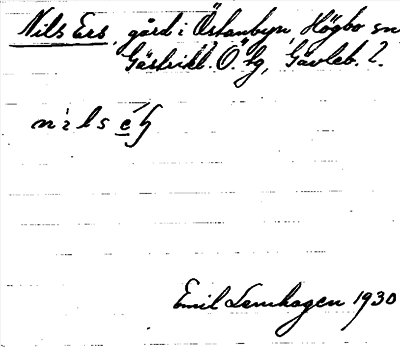 Nils Ers, gård i Östanbyn, Högbo sn
Gästrikl. Ö. tg, Gävleb. l.
nils eʹ
Emil Lemhagen 1930